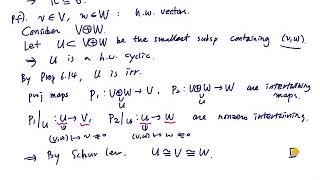 pf) v∈V, w∈W : h.w. vector.
Consider V⊕W.
Let U⊂V⊕W be the smallest subsp containing (v,w).
⇒ U is a h.w. cyclic.
By Prop 6.14, U is irr.
proj maps P₁: V⊕W → V, P₂: V⊕W → W are intertwining maps.
∪ ∪
U U
P₁|u : U → V, P₂|u : U → W are nonzero intertwining.
(v,w) ↦ v ≠ 0 (v,w) ↦ w ≠ 0
⇒ By Schur lem. U ≅ V ≅ W.